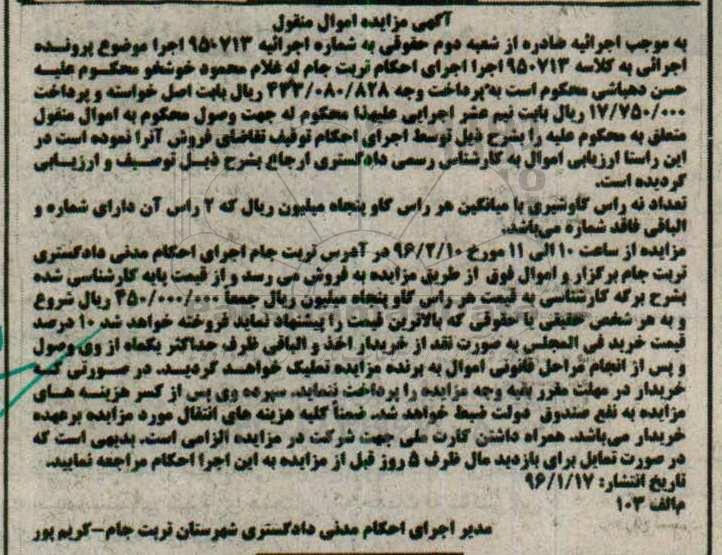 آگهی مزایده اموال منقول
به موجب اجرائیه صادره از شعبه دوم حقوقی به شماره اجرائیه ۹۵۰۷۱۳ اجرا موضوع پرونده
اجرائی به کلاسه ۹۵۰۷۱۳ اجرا اجرای احکام تربت جام له غلام محمود خوشخو محکوم علیه
حسن دهباشی محکوم است به پرداخت وجه ۴۳۳/۰۸۰/۸۲۸ ریال بابت اصل خواسته و پرداخت
۱۷/۷۵۰/۰۰۰ ریال بابت نیم عشر اجرایی علیهذا محکوم له جهت وصول محکوم به اموال منقول
متعلق به محکوم علیه را بشرح ذیل توسط اجرای احکام توقیف تقاضای فروش آنرا نموده است در
این راستا ارزیابی اموال به کارشناس رسمی دادگستری ارجاع بشرح ذیل توصیف و ارزیابی
گردیده است.
تعداد نه راس گاوشیری با میانگین هر راس گاو پنجاه میلیون ریال که ۲ راس آن دارای شماره و
الباقی فاقد شماره می‌باشد.
مزایده از ساعت ۱۰ الی ۱۱ مورخ ۹۶/۲/۱۰ در آدرس تربت جام اجرای احکام مدنی دادگستری
تربت جام برگزار و اموال فوق از طریق مزایده به فروش می رسد و از قیمت پایه کارشناسی شده
بشرح برگه کارشناسی به قیمت هر راس گاو پنجاه میلیون ریال جمعاً ۴۵۰/۰۰۰/۰۰۰ ریال شروع
و به هر شخص حقیقی یا حقوقی که بالاترین قیمت را پیشنهاد نماید فروخته خواهد شد ۱۰ درصد
قیمت خرید فی المجلس به صورت نقد از خریدار اخذ و الباقی ظرف حداکثر یکماه از وی وصول
و پس از انجام مراحل قانونی اموال به برنده مزایده تملیک خواهد گردید. در صورتی که
خریدار در مهلت مقرر بقیه وجه مزایده را پرداخت ننماید. سپرده وی پس از کسر هزینه های
مزایده به نفع صندوق دولت ضبط خواهد شد. ضمناً کلیه هزینه های انتقال مورد مزایده برعهده
خریدار می‌باشد. همراه داشتن کارت ملی جهت شرکت در مزایده الزامی است. بدیهی است که
در صورت تمایل برای بازدید مال ظرف ۵ روز قبل از مزایده به این اجرا احکام مراجعه نمایید.
تاریخ انتشار: ۹۶/۱/۱۷
م‌الف ۱۰۳
مدیر اجرای احکام مدنی دادگستری شهرستان تربت جام-کریم پور